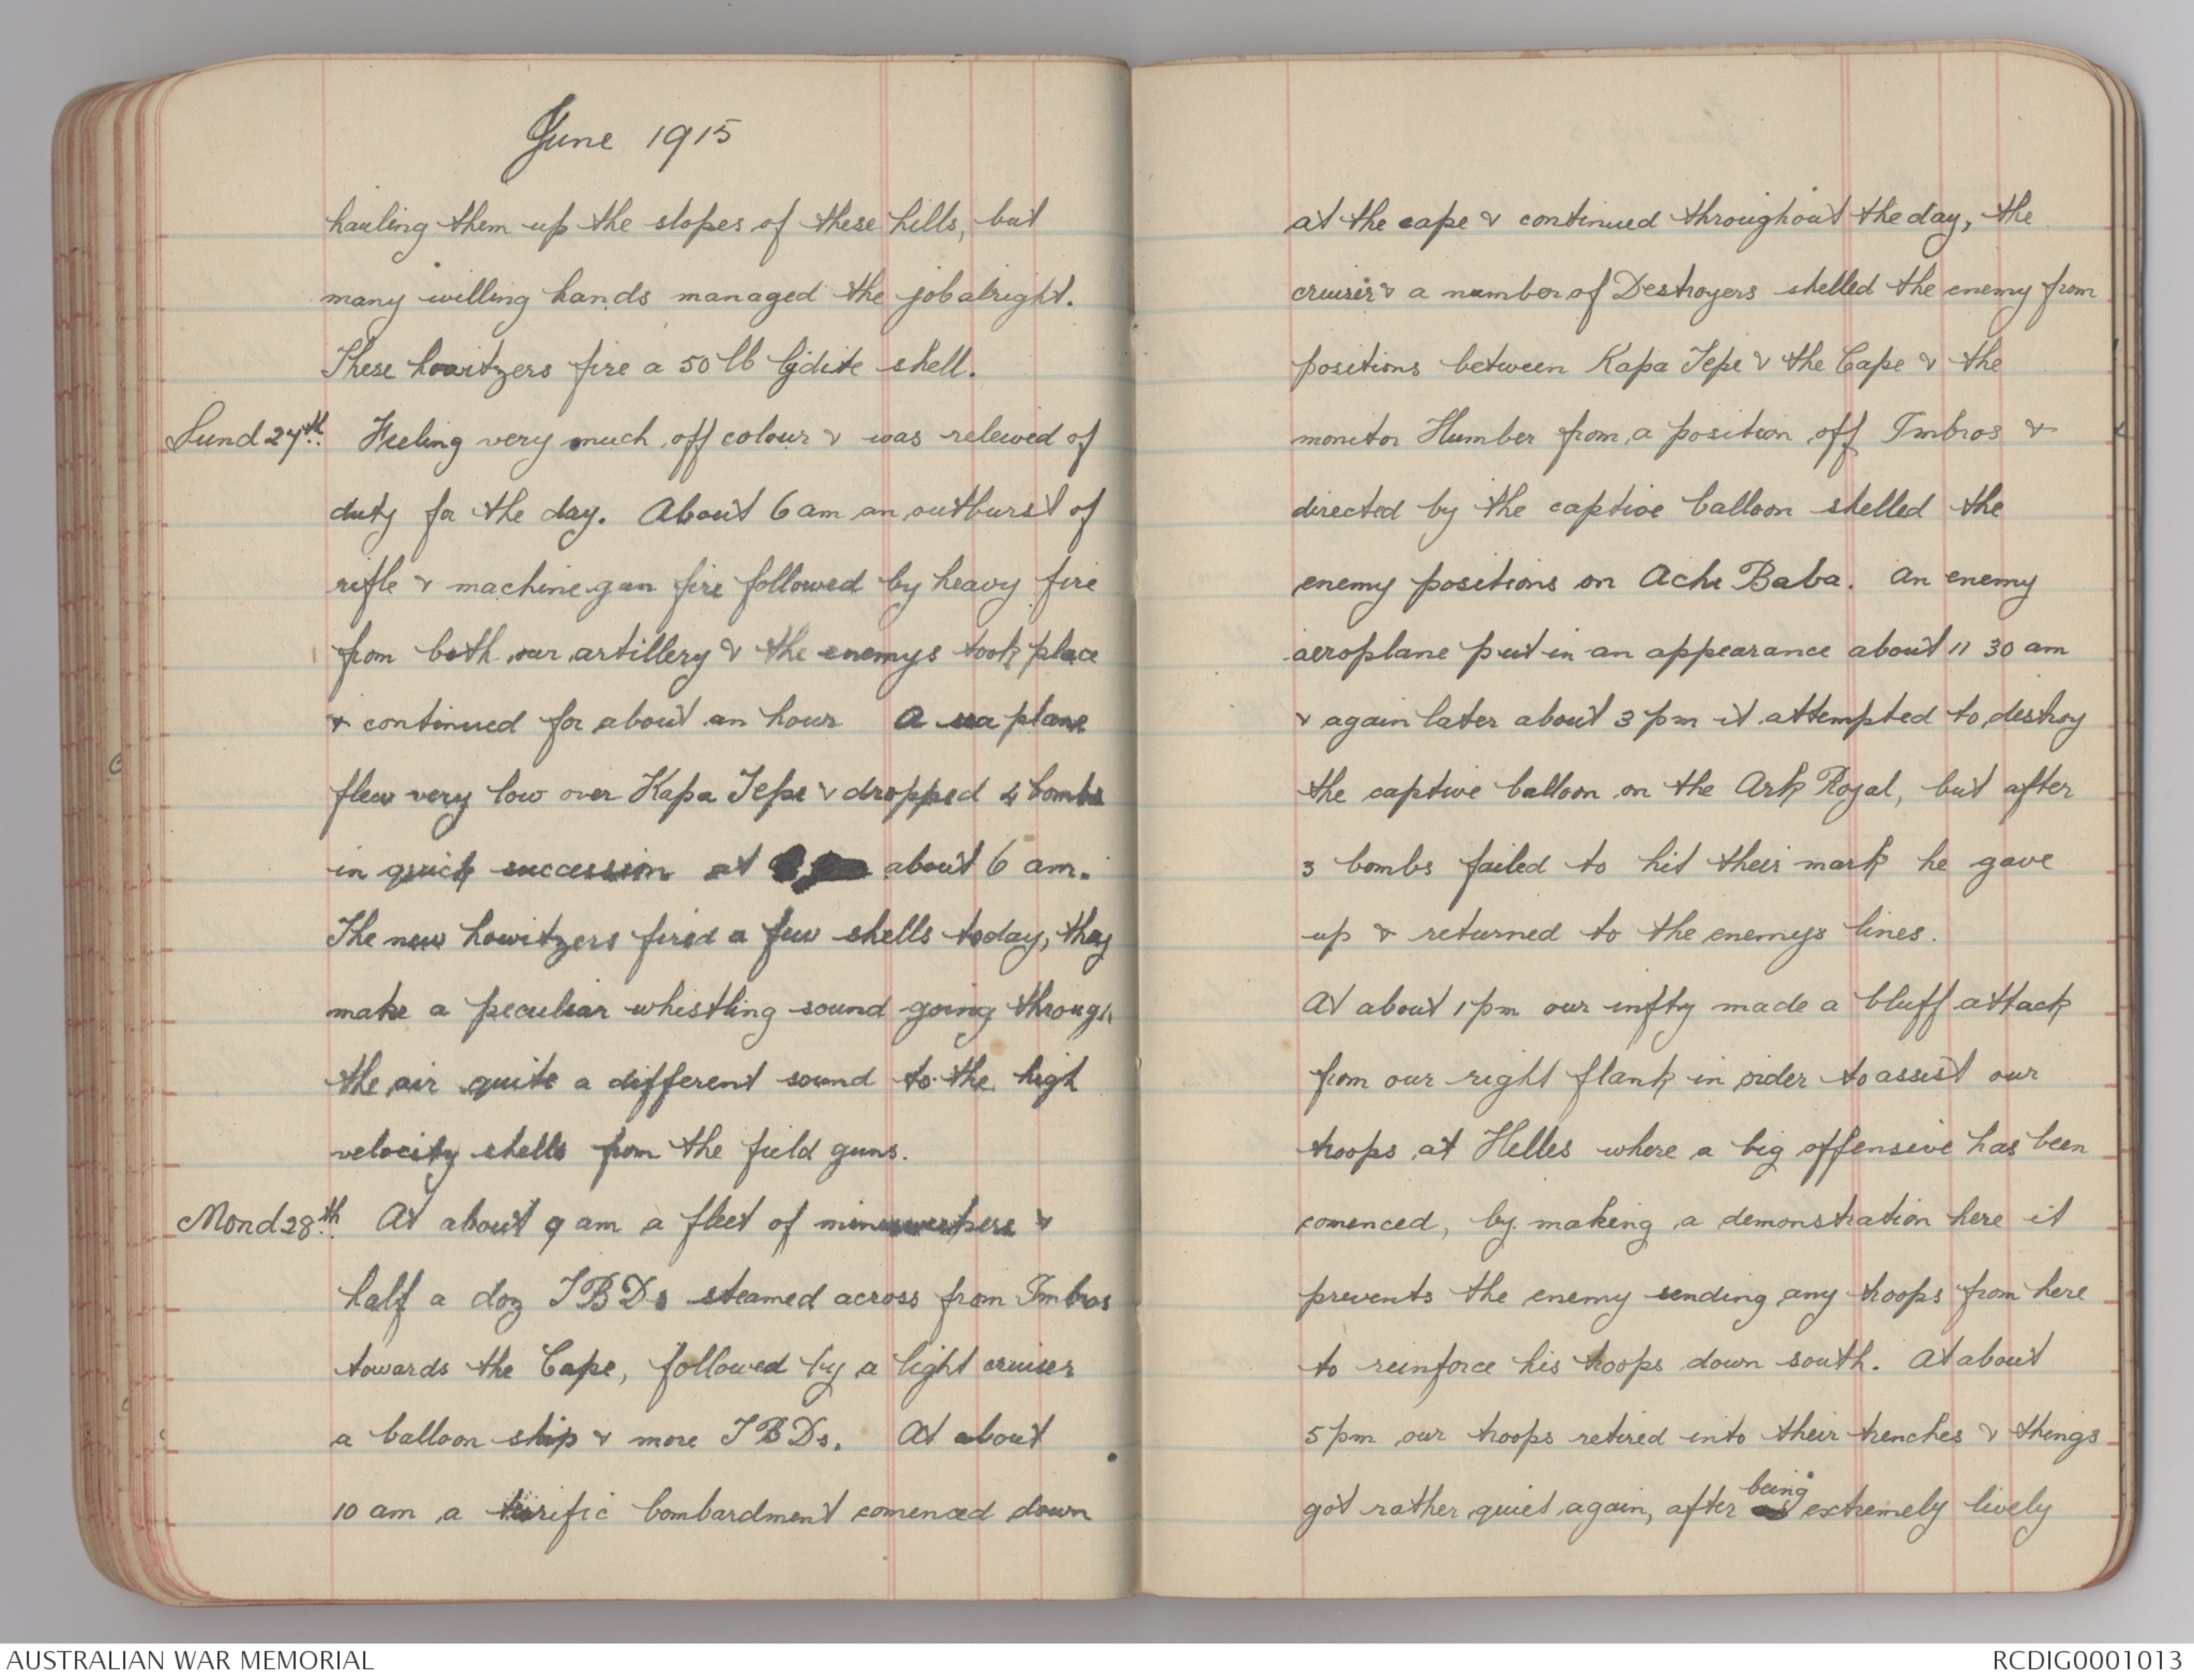 June 1915
hauling them up the slopes of these hills, but
many willing hands managed the job alright.
These howitzers fire a 50 lb lydite shell.
Sund 27th. Feeling very much off colour & was releived of
duty for the day. About 6 am an outburst of
rifle & machine gun fire followed by heavy fire
from both our artillery & the enemys took place
& continued for about an hour A sea plane
flew very low over Kapa Tepe & dropped 4 bombs
in quick succession at about 6 am.
The new howitzers fired a few shells today, they
make a peculiar whistling sound going through
the air quite a different sound to the high
velocity shells from the field guns.
Mond 28th. At about 9 am a fleet of minesweepers &
half a doz T B Ds steamed across from Imbros
towards the Cape, followed by a light cruiser
a balloon ship & more T B Ds. At about
10 am a terrific bombardment comenced down
at the cape & continued throughout the day, the
cruiser & a number of Destroyers shelled the enemy from
positions between Kapa Tepe & the Cape & the
monitor Humber from a position off Imbros &
directed by the captive balloon shelled the
enemy positions on Achi Baba. An enemy
aeroplane put in an appearance about 11 30 am
& again later about 3 pm it attempted to destroy
the captive balloon on the Ark Royal, but after
3 bombs failed to hit their mark he gave
up & returned to the enemys lines.
At about 1 pm our infty made a bluff attack
from our right flank in order to assist our
troops at Helles where a big offensive has been
comenced, by making a demonstration here it
prevents the enemy sending any troops from here
to reinforce his troops down south. At about
5 pm our troops retired into their trenches & things
got rather quiet again, after being extremely lively
AUSTRALIAN WAR MEMORIAL
RCDIG0001013